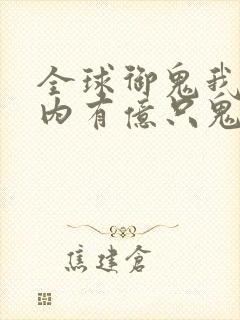 全球御鬼我
内有億只鬼
焦建倉